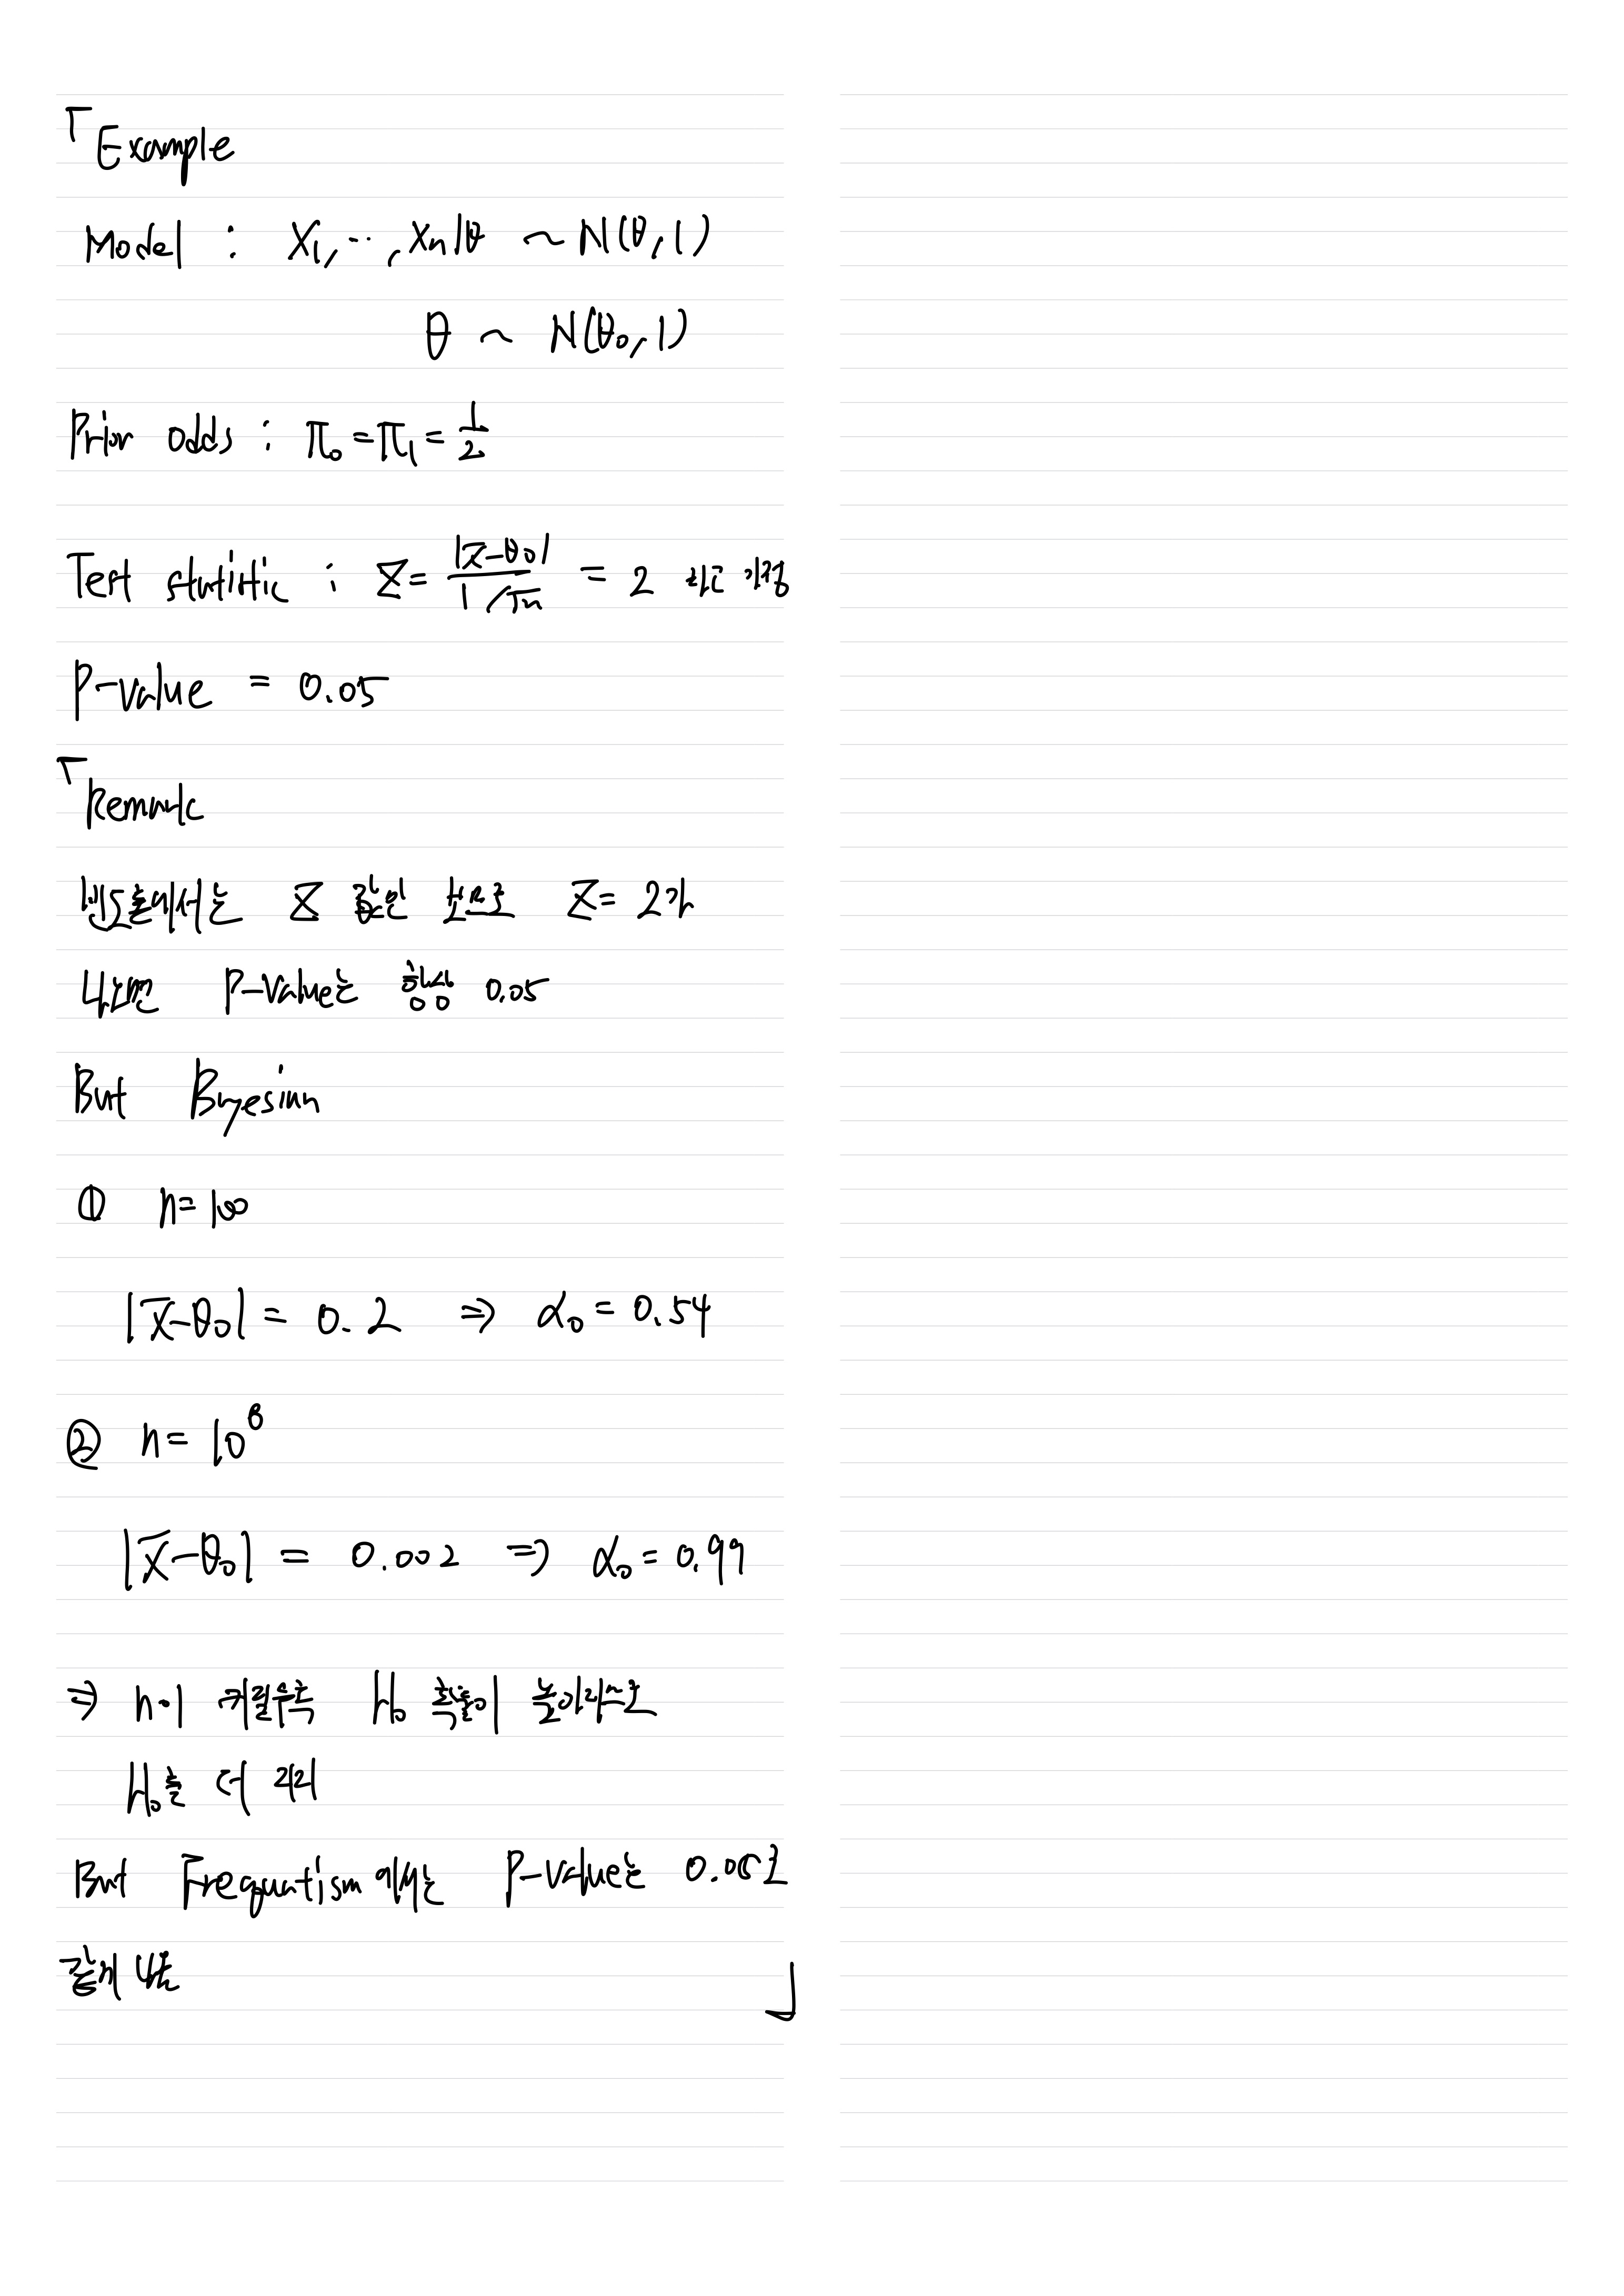 「Example
Model : X₁, ⋯, Xₙ|θ ~ N(θ, 1)
θ ~ N(θ₀, 1)
Prior odds : π₀ = π₁ = 1/2
Test statistic : Z = |x̄-θ₀| / (1/√n) = 2
P-value = 0.05
「Remark
빈도론에서는 Z 값만 보므로 Z = 2가
나오면 P-value는 항상 0.05
But Bayesian
① n = 100
|x̄-θ₀| = 0.2 ⇒ α₀ = 0.54
② n = 10⁸
|x̄-θ₀| = 0.002 ⇒ α₀ = 0.99
⇒ n이 커질수록 H₀ 쪽이 높아지므로
H₀를 더 지지
But Frequentism 에서는 P-value는
같게 나옴 」